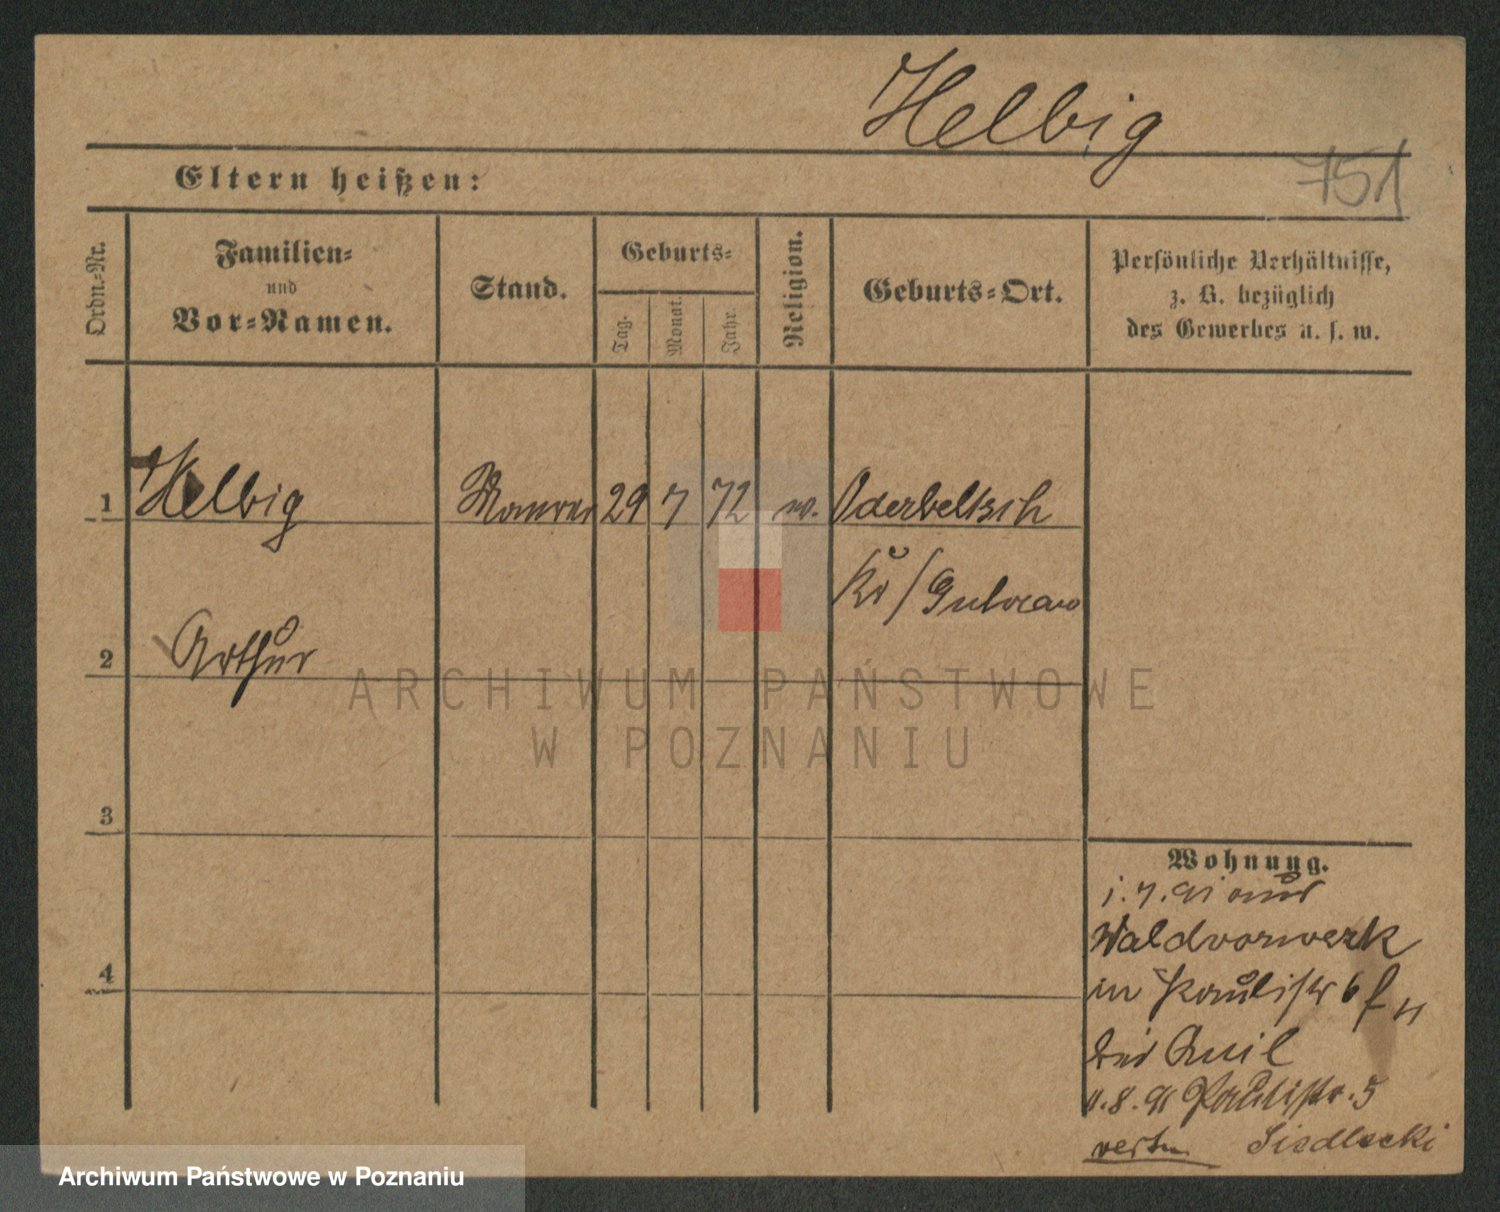 Helbig
751
Eltern heißen:
Ordn.=Nr.
Familien=
und
Vor=Namen.
Stand.
Geburts=
Tag.
Monat.
Jahr.
Religion.
Geburts=Ort.
Persönliche Verhältnisse,
z. B. bezüglich
des Gewerbes u. s. w.
1 Helbig Maurer 29 7 72 Oderbeltsch
Kr/Guhrau
2 Arthur
3
4
Wohnung.
aus
Waldvorwerk
in Paulistr 6
bei
8. 91 Paulistr. 5
Siedlecki
ARCHIWUM PAŃSTWOWE
W POZNANIU
Archiwum Państwowe w Poznaniu